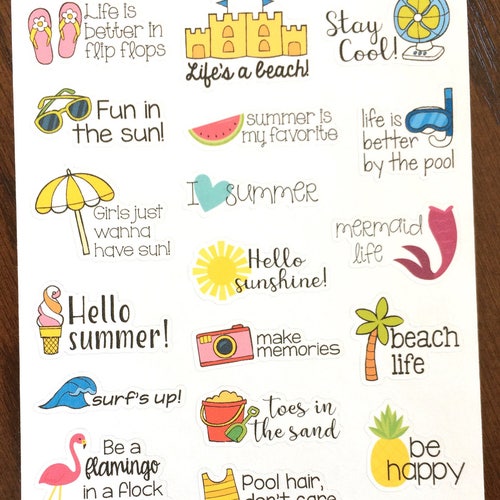 Life is
better in
flip flops
Life's a beach!
Stay
Cool!
Fun in
the sun!
summer is
my favorite
life is
better
by the pool
Girls just
wanna
have sun!
I summer
mermaid
life
Hello
sunshine!
Hello
summer!
make
memories
beach
life
surf's up!
toes in
the sand
be
happy
Be a
flamingo
in a flock
Pool hair,
don't care